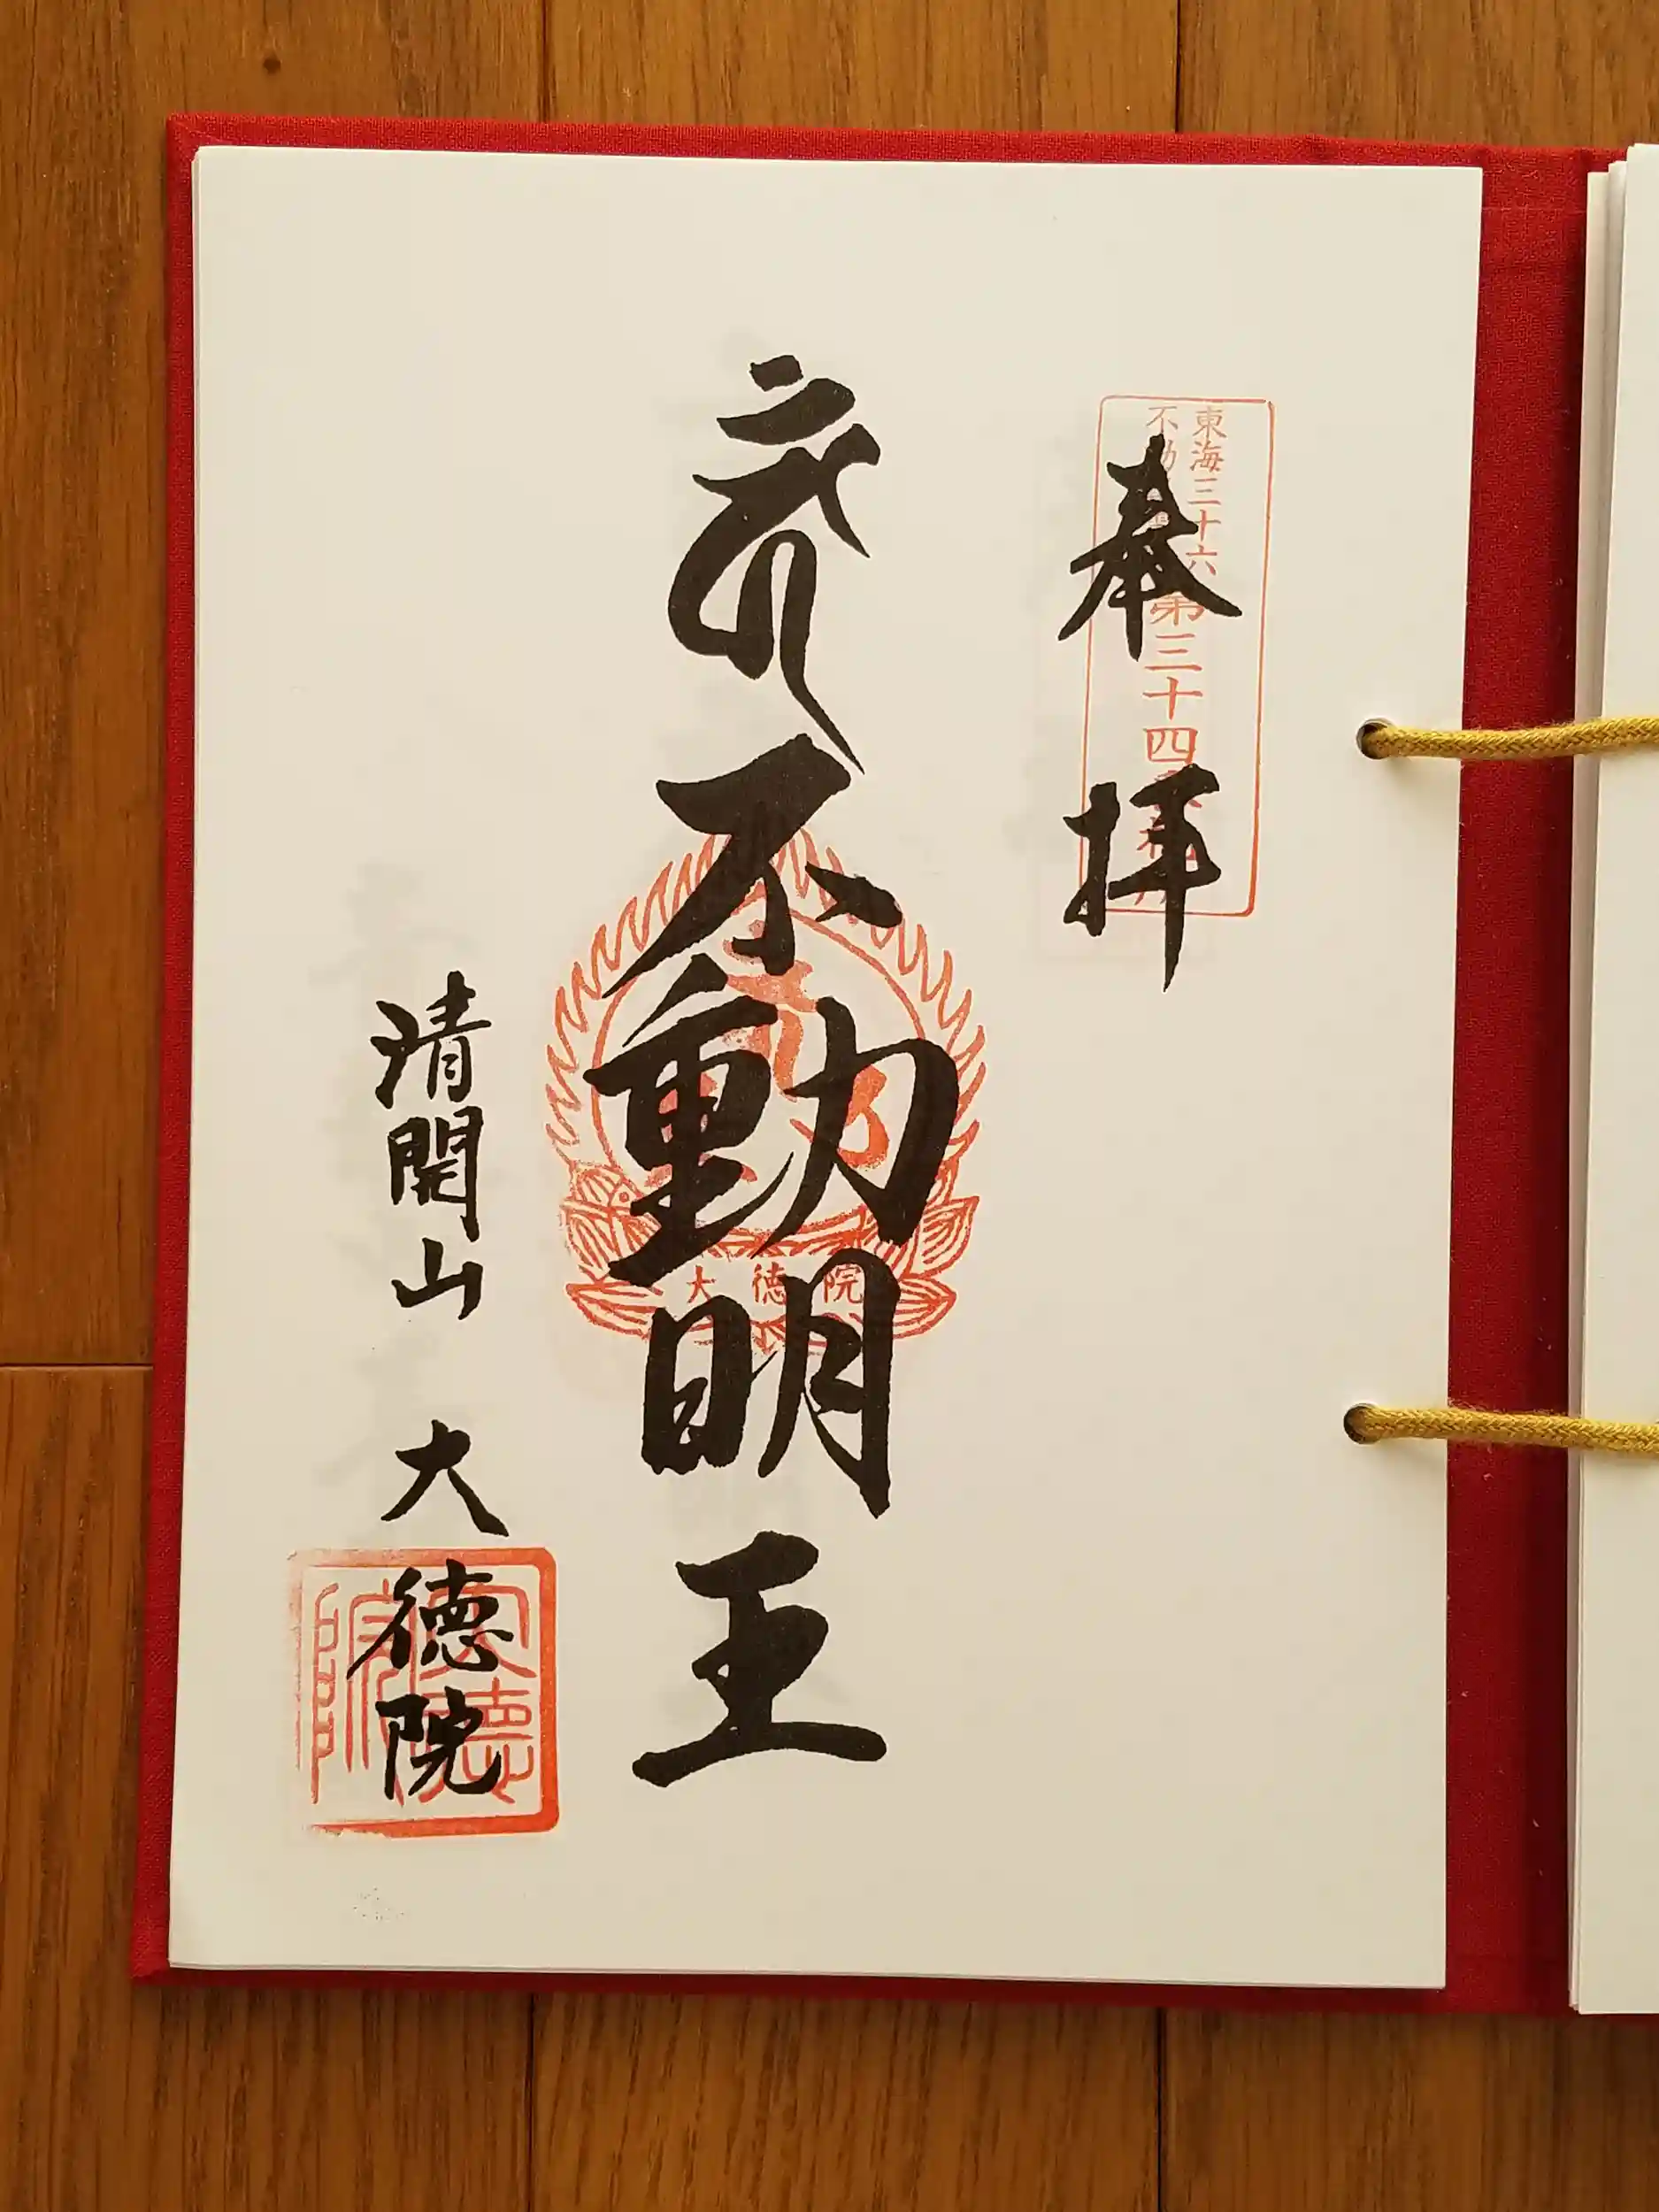 東海三十六
不動
第三十四
奉拝
不動明王
大徳院
清開山 大徳院
大德院